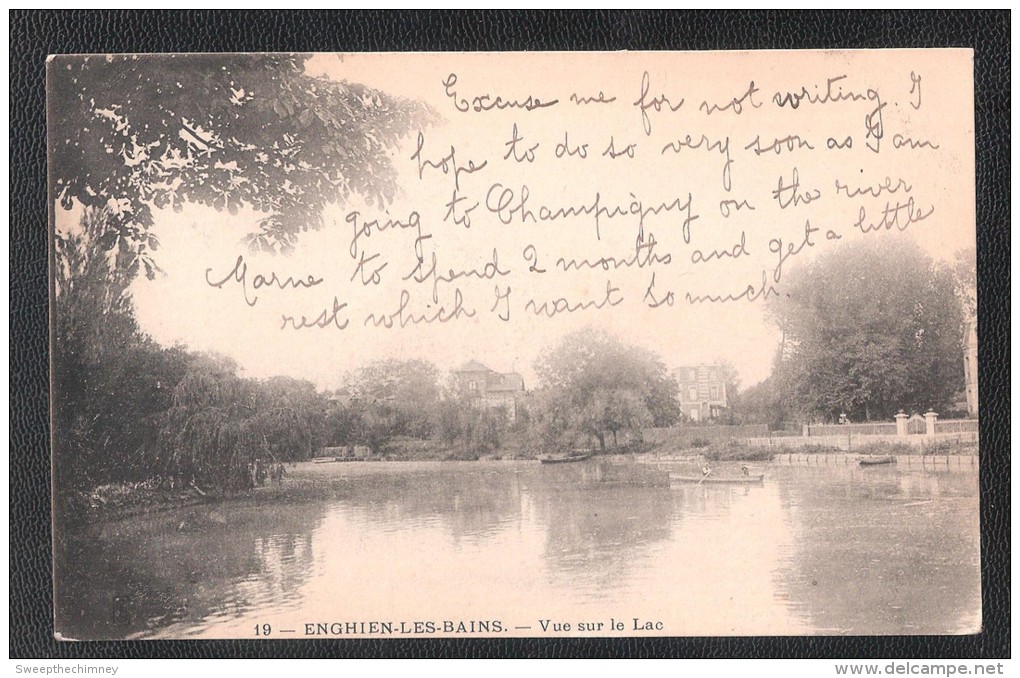 Excuse me for not writing. I
hope to do so very soon as I am
going to Champigny on the river
Marne to spend 2 months and get a little
rest which I want so much.
19 — ENGHIEN-LES-BAINS. — Vue sur le Lac
Sweepthechimney
www.delcampe.net